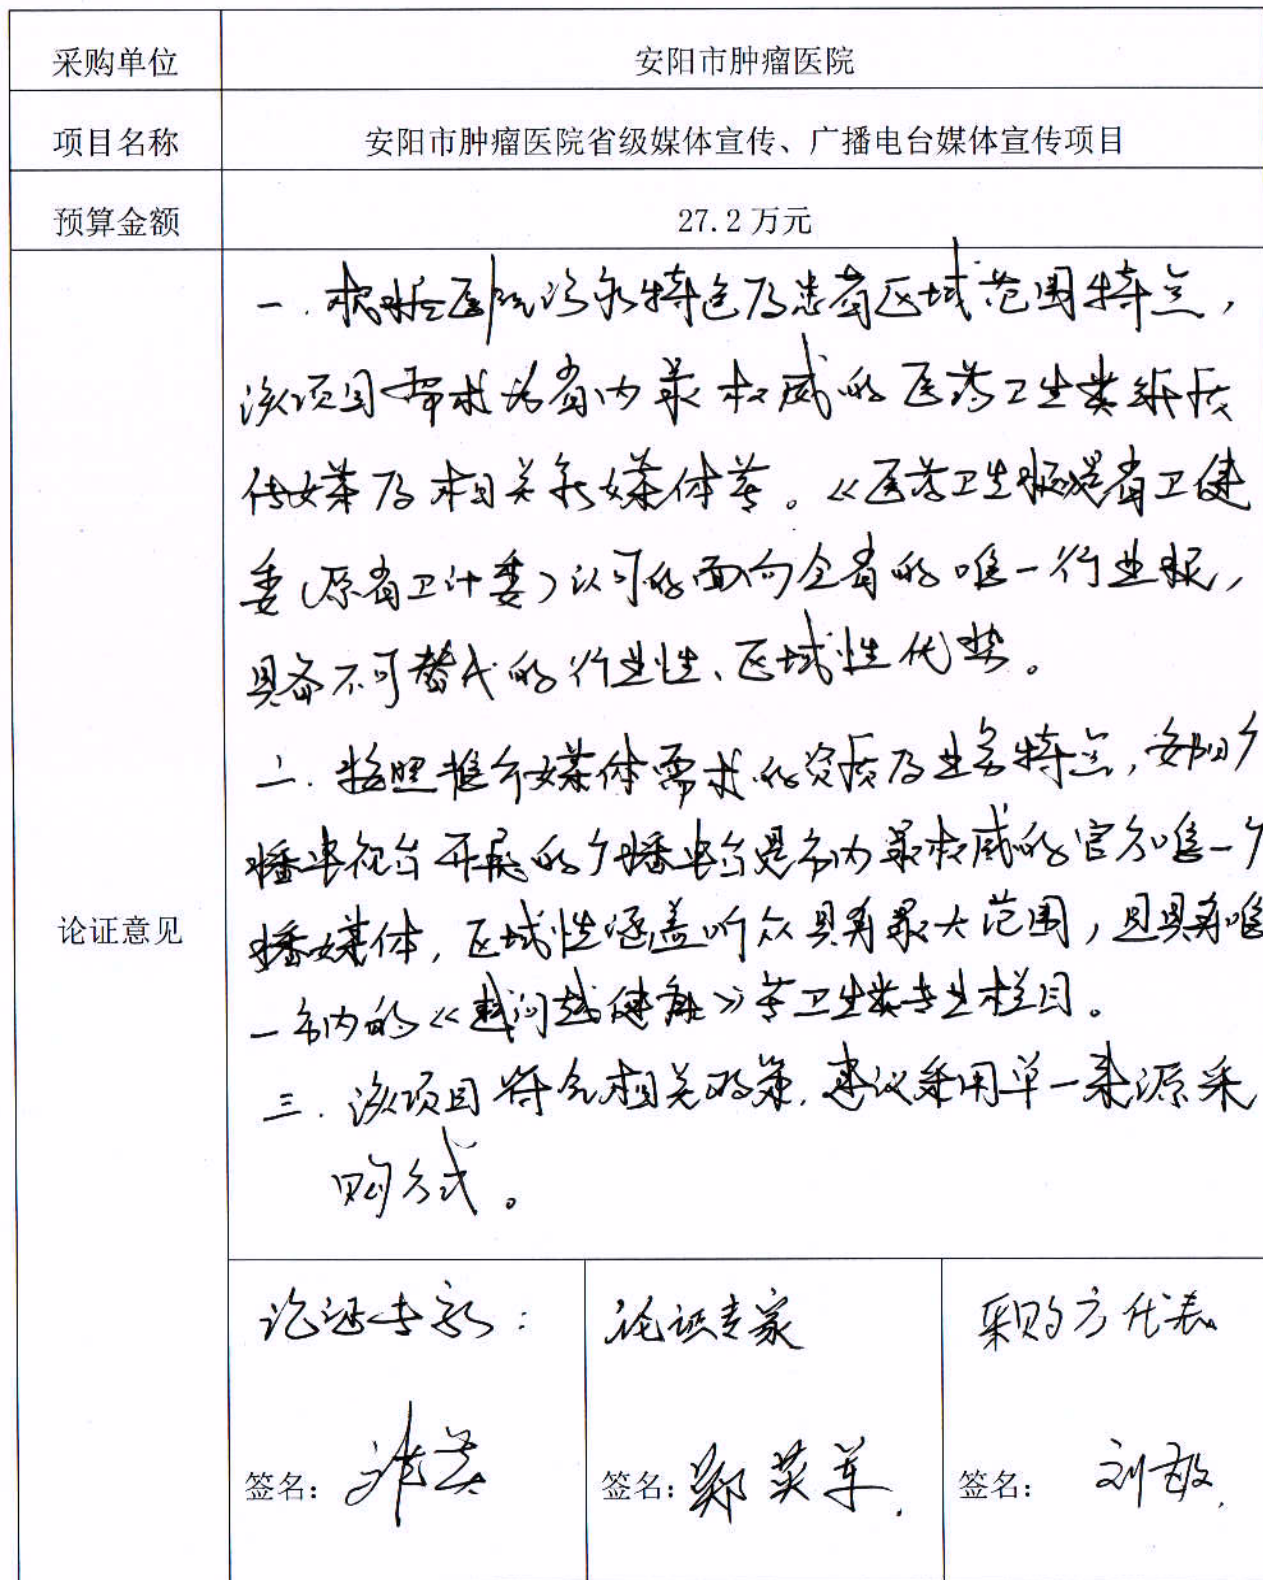 采购单位 安阳市肿瘤医院
项目名称 安阳市肿瘤医院省级媒体宣传、广播电台媒体宣传项目
预算金额 27.2万元
论证意见
一.根据医院诊疗特色及患者区域范围特点,
该项目需求为省内最权威的医药卫生类纸质
传媒及相关新媒体等。《医药卫生报》是省卫健
委(原省卫计委)认可的面向全省的唯一行业报,
具备不可替代的行业性、区域性优势。
二.按照推介媒体需求的资质及业务特点,安阳广
播电视台开展的广播电台是市内最权威的官方唯一广
播媒体,区域性涵盖听众具有最大范围,且具有唯
一市内的《越问越健康》等卫生类专业栏目。
三.该项目符合相关政策.建议采用单一来源采
购方式。
论证专家: 论证专家 采购方代表
签名: 签名:郑英军. 签名:刘敏.